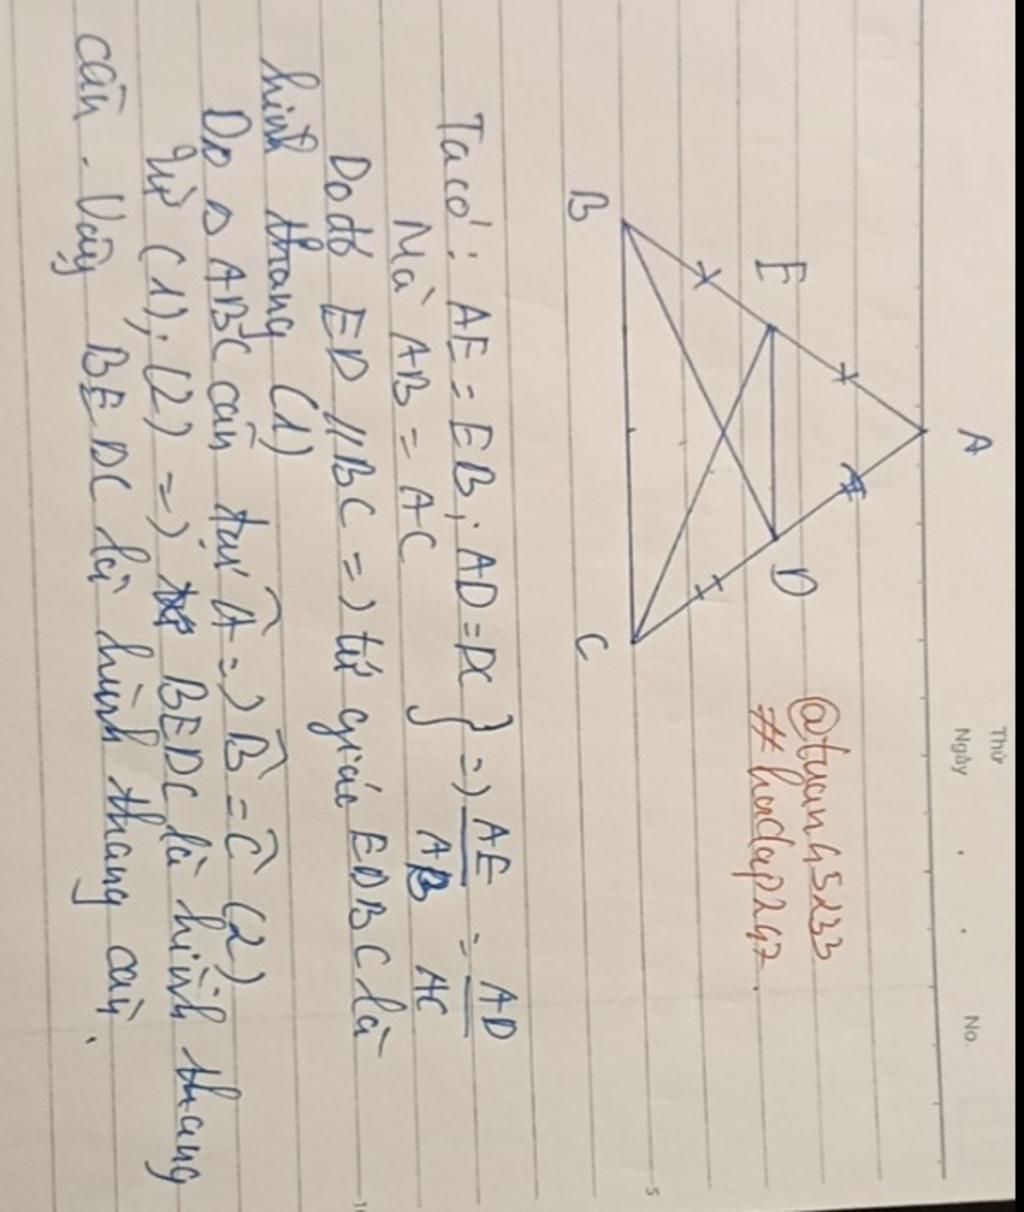 Thứ
Ngày . . No.
A
@tuan45233
#hoidap247.
E D
B C
5
Ta có: AE = EB; AD = DC } => AE/AB = AD/AC
Mà AB = AC
Do đó ED // BC => tứ giác EDBC là
10
hình thang (1)
Do Δ ABC cân tại Â => B̂ = Ĉ (2)
Từ (1); (2) => BEDC là hình thang
cân. Vậy BEDC là hình thang cân.